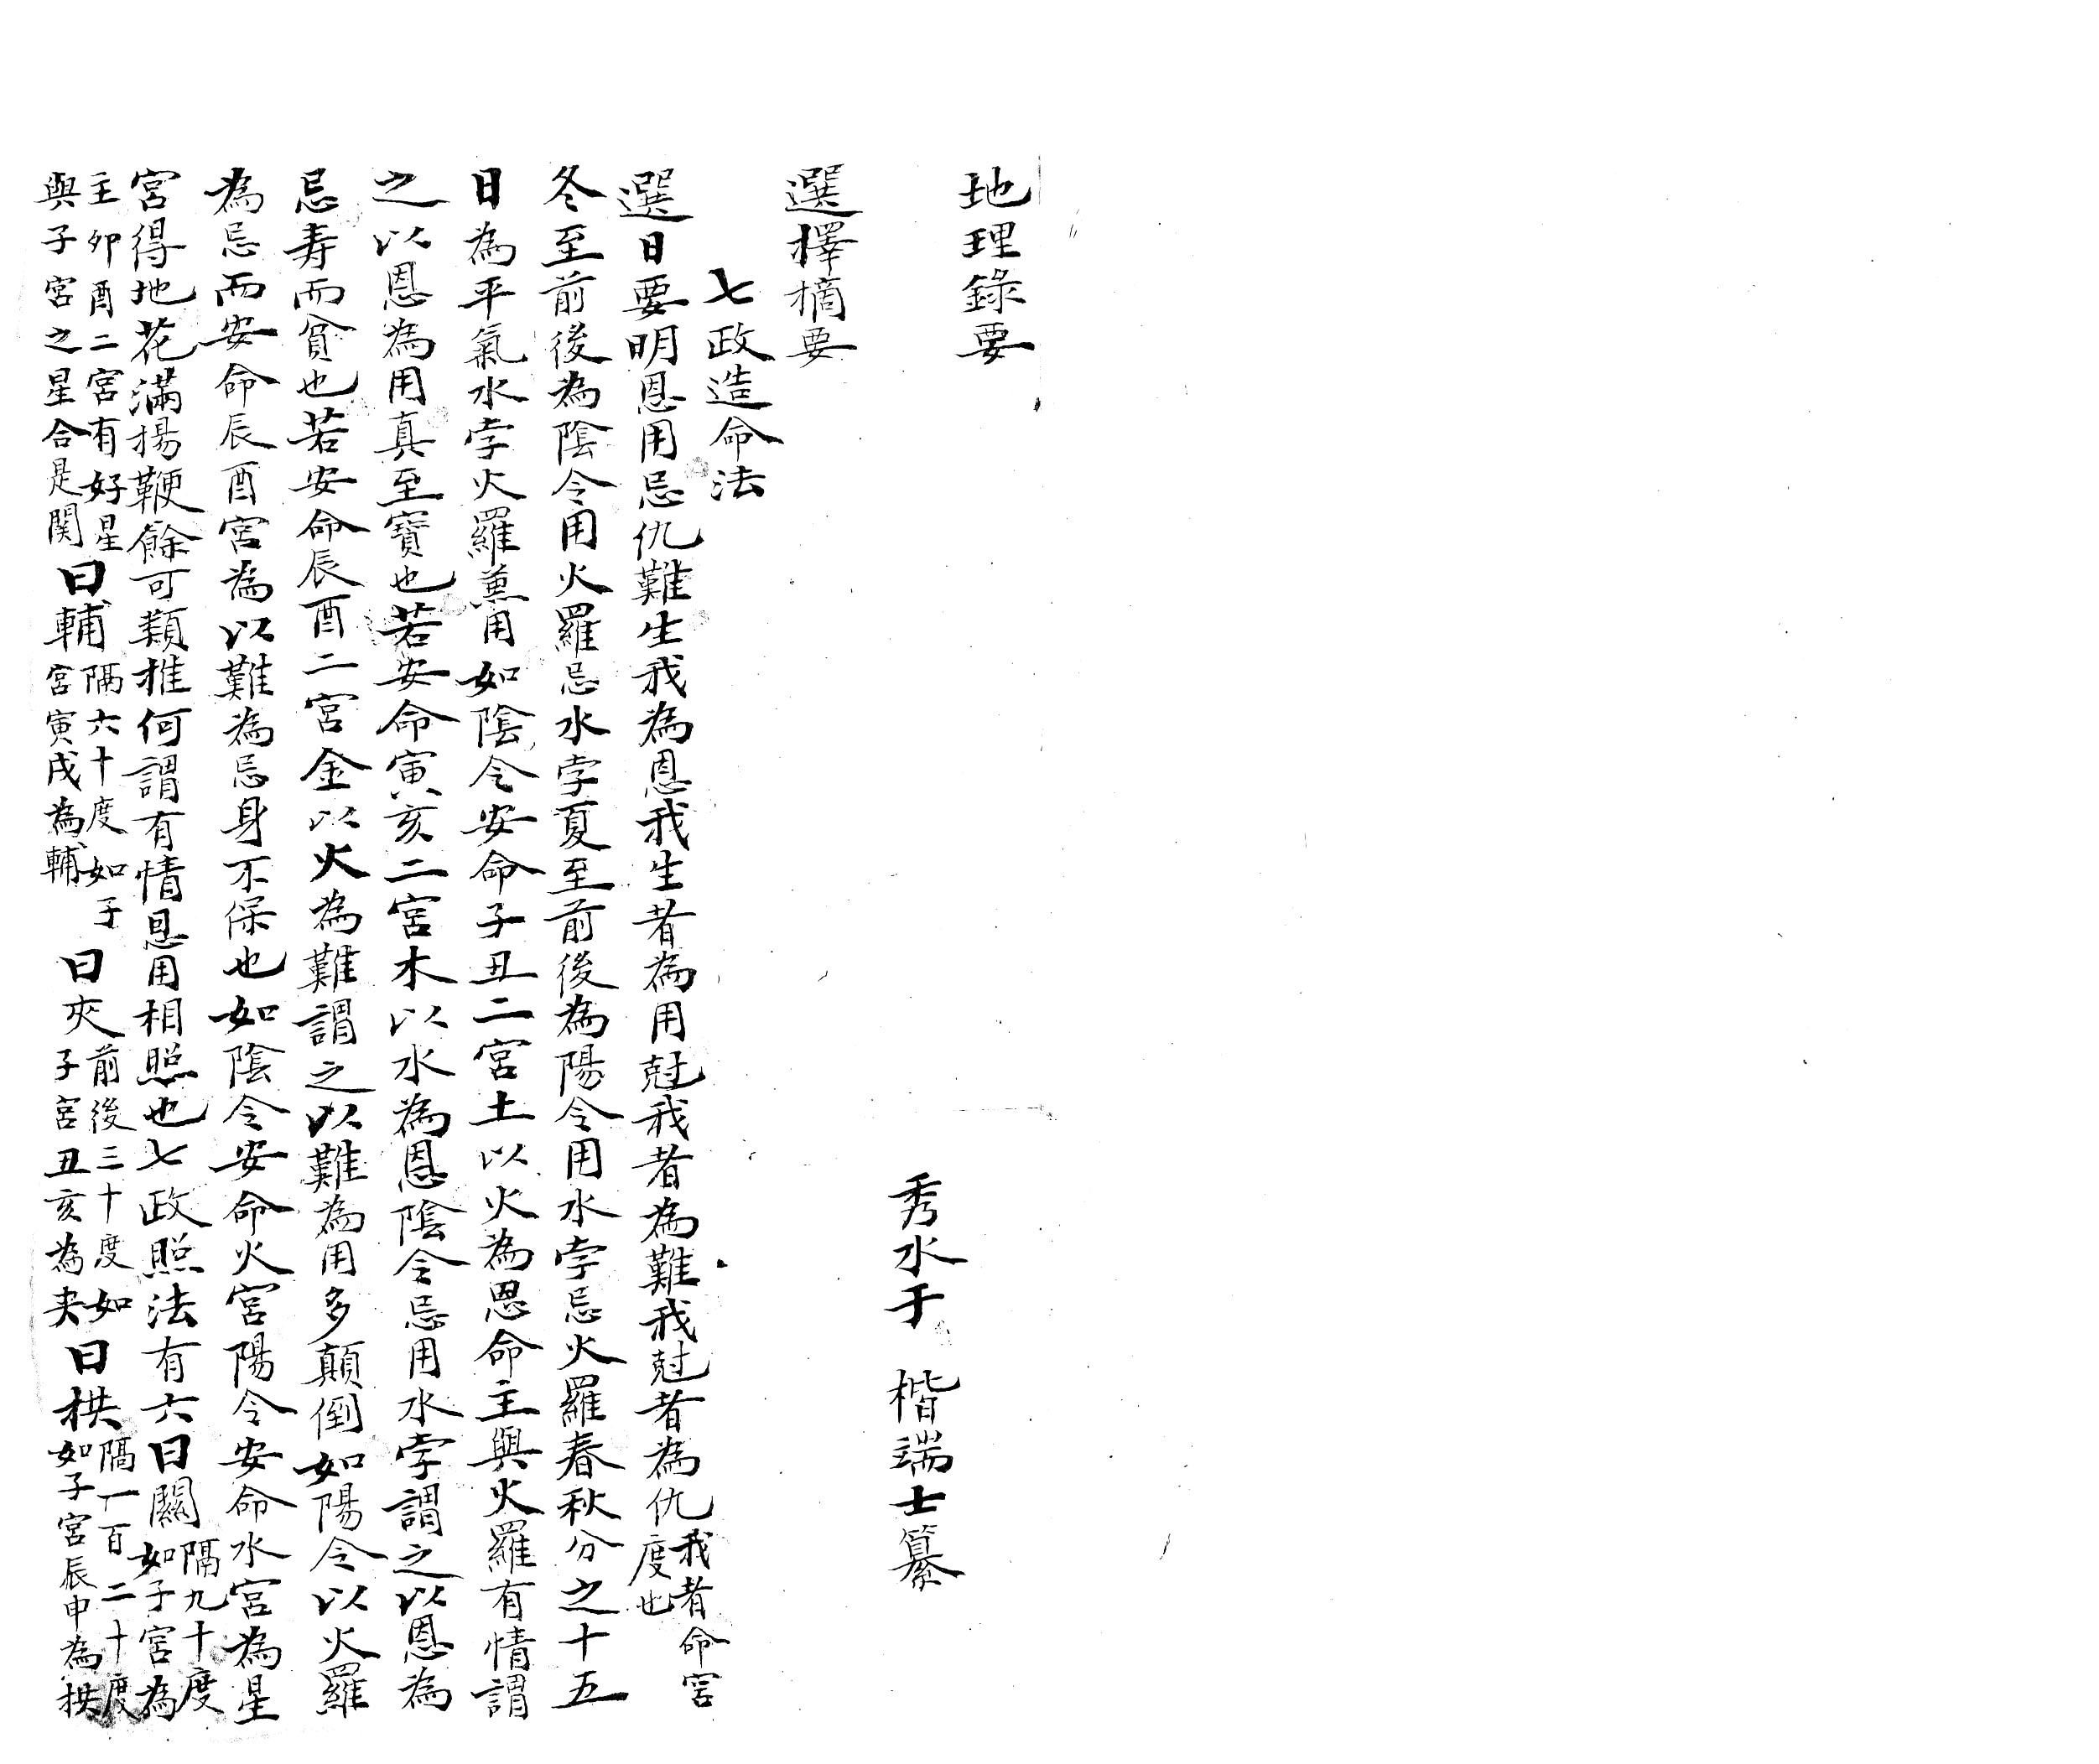 地理錄要
秀水于 楷端士纂
選擇摘要
七政造命法
選日要明恩用忌仇難生我為恩我生者為用尅我者為難我尅者為仇我者命宮度也
冬至前後為陰令用火羅忌水孛夏至前後為陽令用水孛忌火羅春秋分之十五
日為平氣水孛火羅薫用如陰令安命子丑二宮土以火為恩命主與火羅有情謂
之以恩為用真至寶也若安命寅亥二宮木以水為恩陰令忌用水孛謂之以恩為
忌寿而貧也若安命辰酉二宮金以火為難謂之以難為用多顛倒如陽令以火羅
為忌而安命辰酉宮為以難為忌身不保也如陰令安命火宮陽令安命水宮為星
宮得地花滿揚鞭餘可類推何謂有情恩用相照也七政照法有六曰關隔九十度如子宮為
主卯酉二宮有好星與子宮之星合是関曰輔隔六十度如子宮寅戌為輔曰夾前後三十度如子宮丑亥為夹曰拱隔一百二十度如子宮辰申為拱